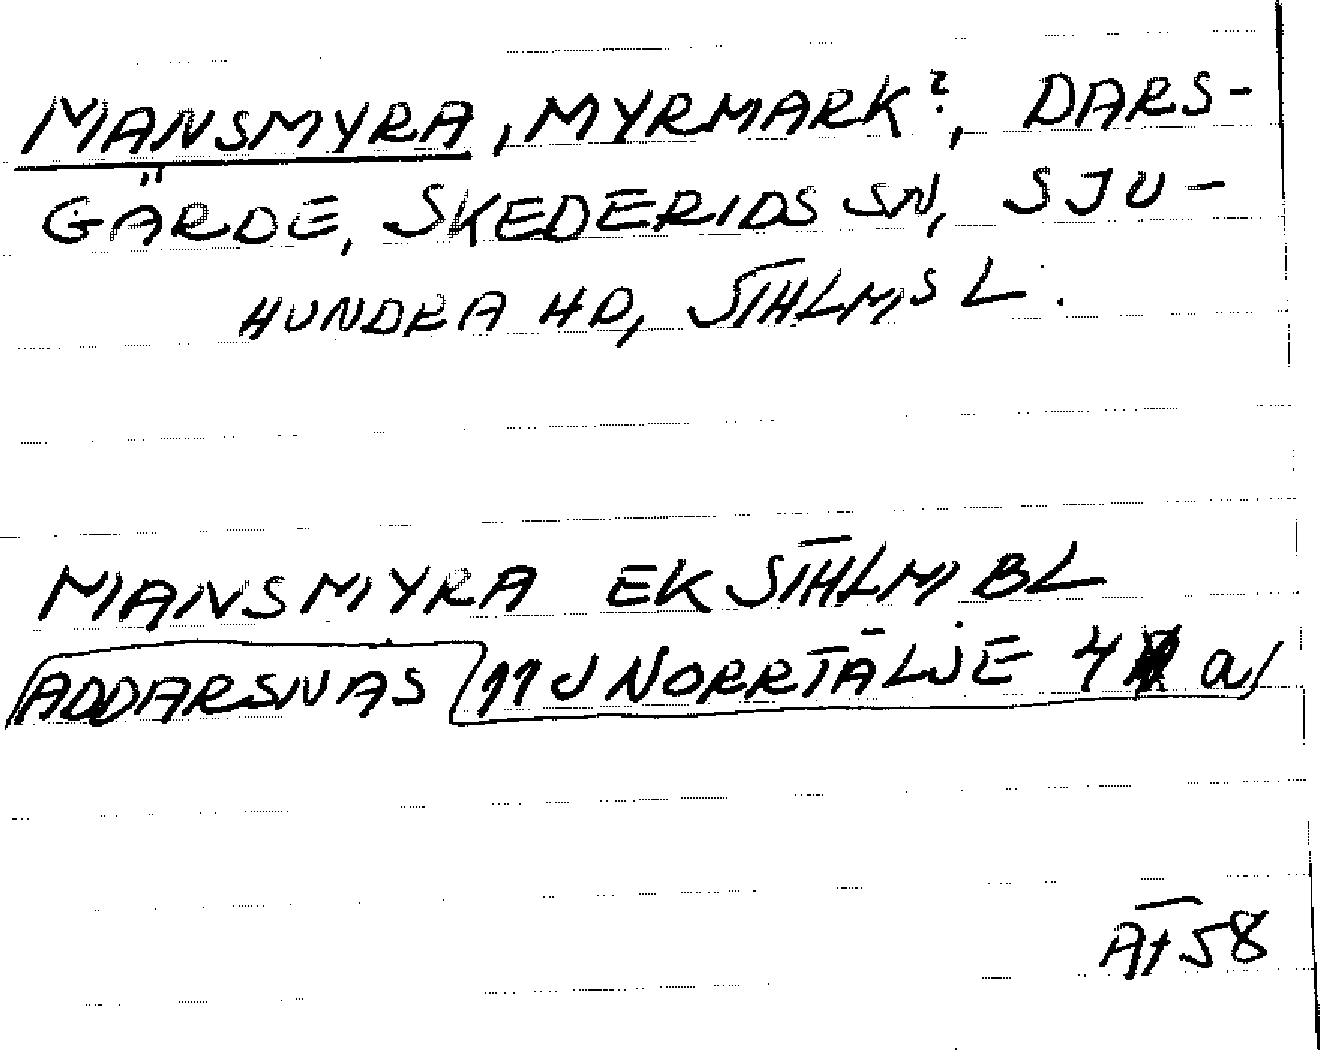 MANSMYRA, MYRMARK?, DARS-
GÄRDE, SKEDERIDS SN, SJU-
HUNDRA HD, STHLMS L.
MANSMYRA EK STHLM BL
ADDARSNAS 11J NORRTÄLJE 4 a
AT 58